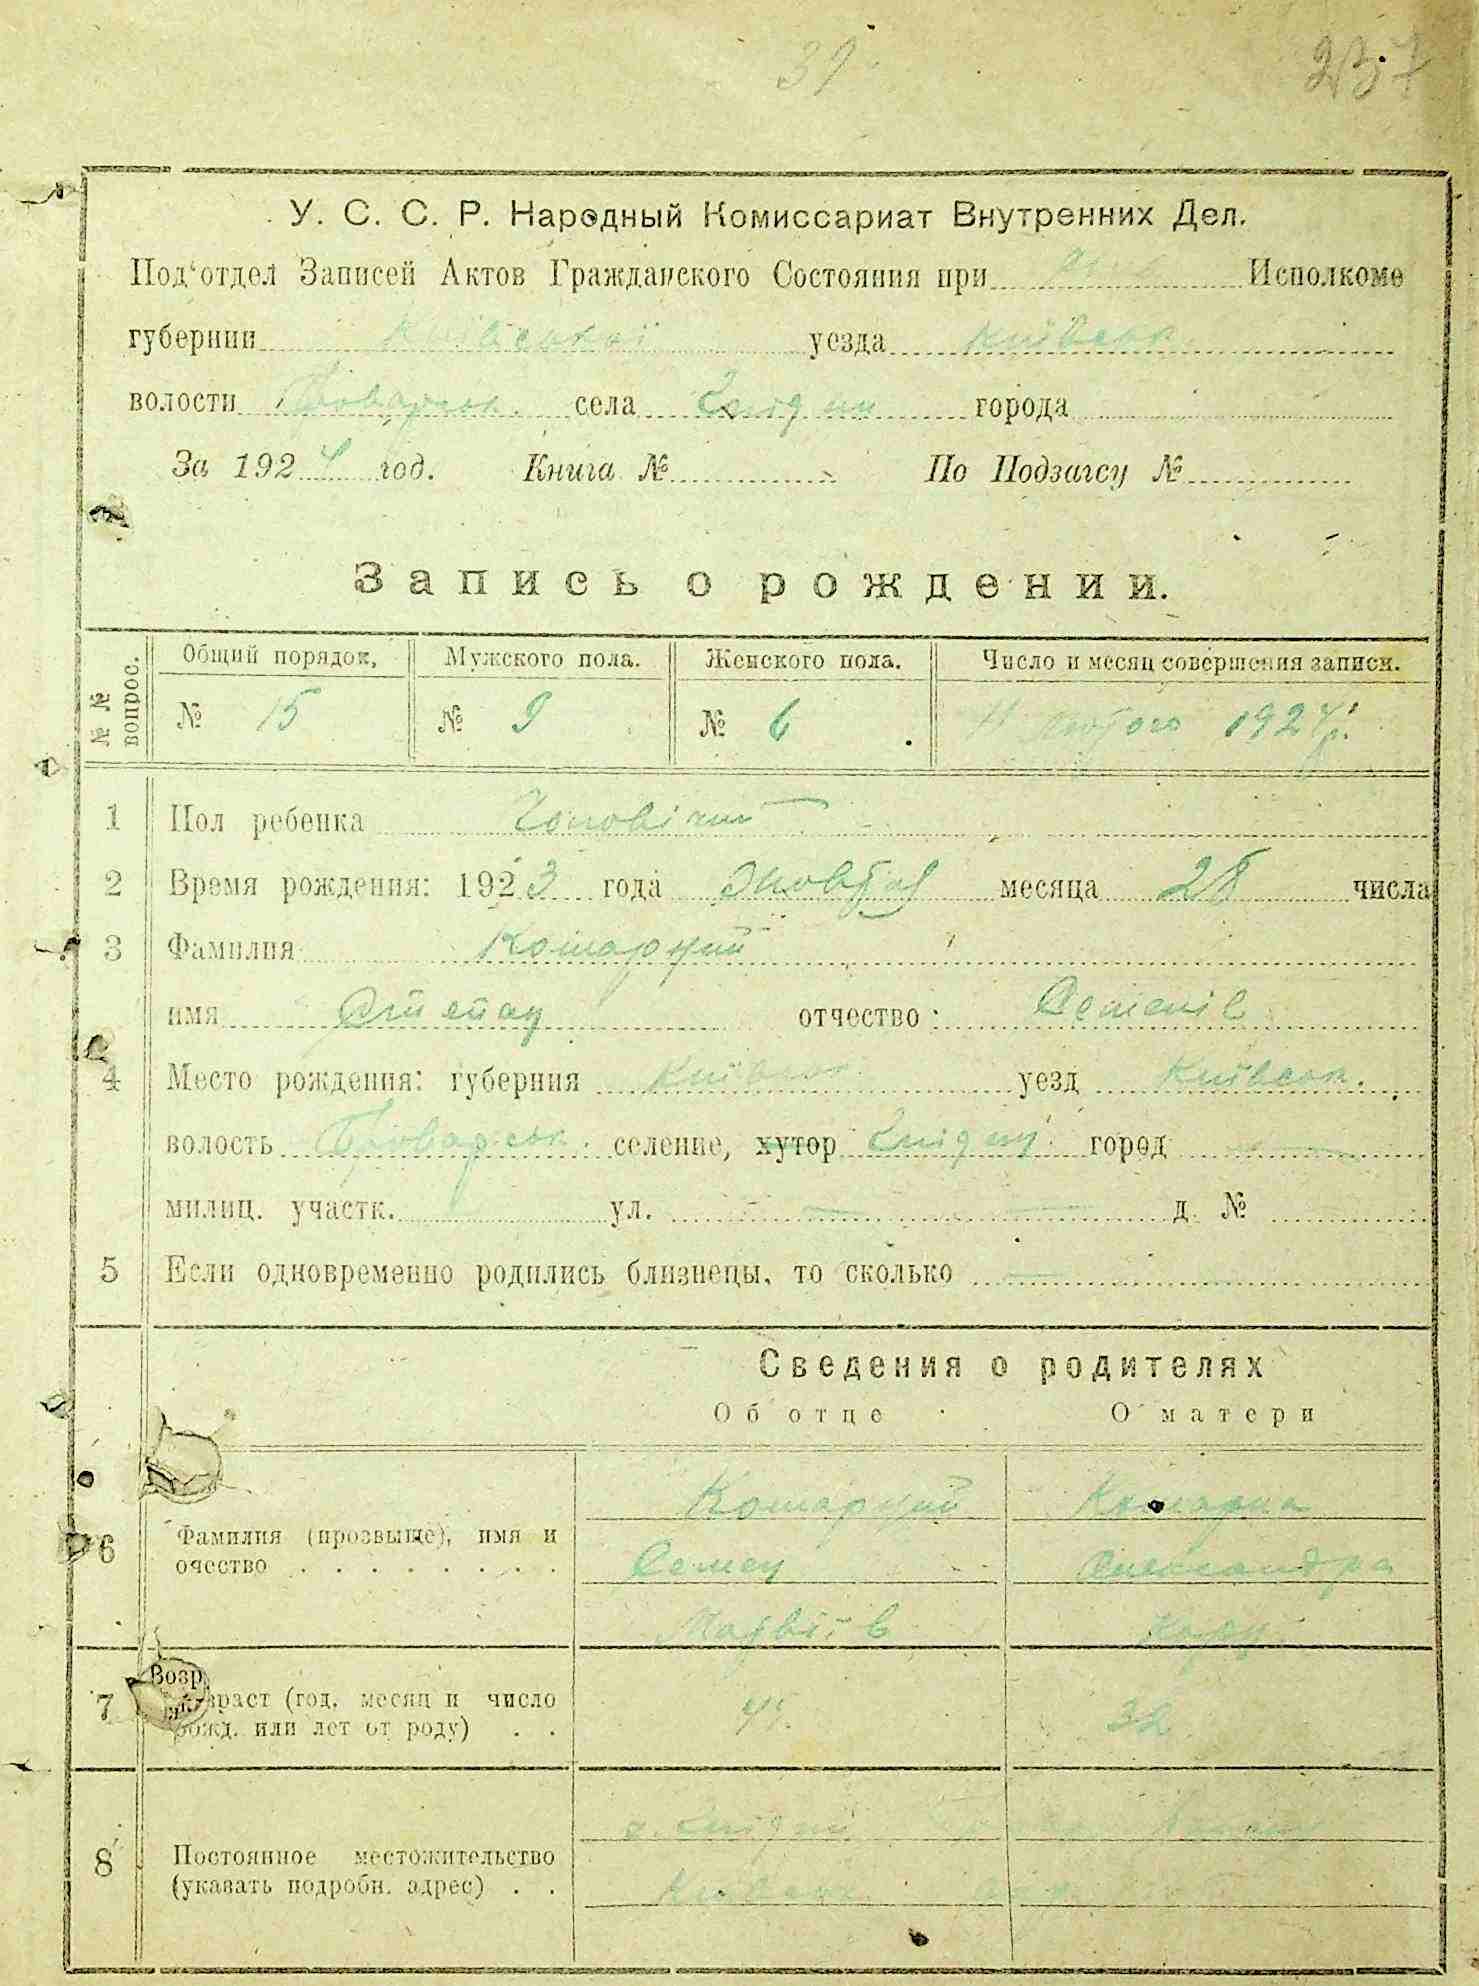 39
237
У. С. С. Р. Народный Комиссариат Внутренних Дел.
Под'отдел Записей Актов Гражданского Состояния при Исполкоме
губернии Київської уезда Київськ.
волости Броварськ. села города
За 1924 год. Книга № По Подзагсу №
Запись о рождении.
№№ вопрос. Общий порядок, Мужского пола. Женского пола. Число и месяц совершения записи.
№ 15 № 9 № 6 11 лютого 1924 р.
1 Пол ребенка Чоловіч.
2 Время рождения: 1923 года Жовтня месяца 28 числа
3 Фамилия Комарний
имя Степан отчество: Семенів
4 Место рождения: губерния Київськ. уезд Київськ.
волость Броварськ. селение, хутор город
милиц. участк. ул. д. №
5 Если одновременно родились близнецы, то сколько
Сведения о родителях
Об отце О матери
6 Фамилия (прозвыще), имя и Комарний Комарна
очество Семен Олександра
Матвіїв
7 Возраст (год, месяц и число 45. 32
рожд. или лет от роду)
8 Постоянное местожительство
(указать подробн. адрес) Київськ.